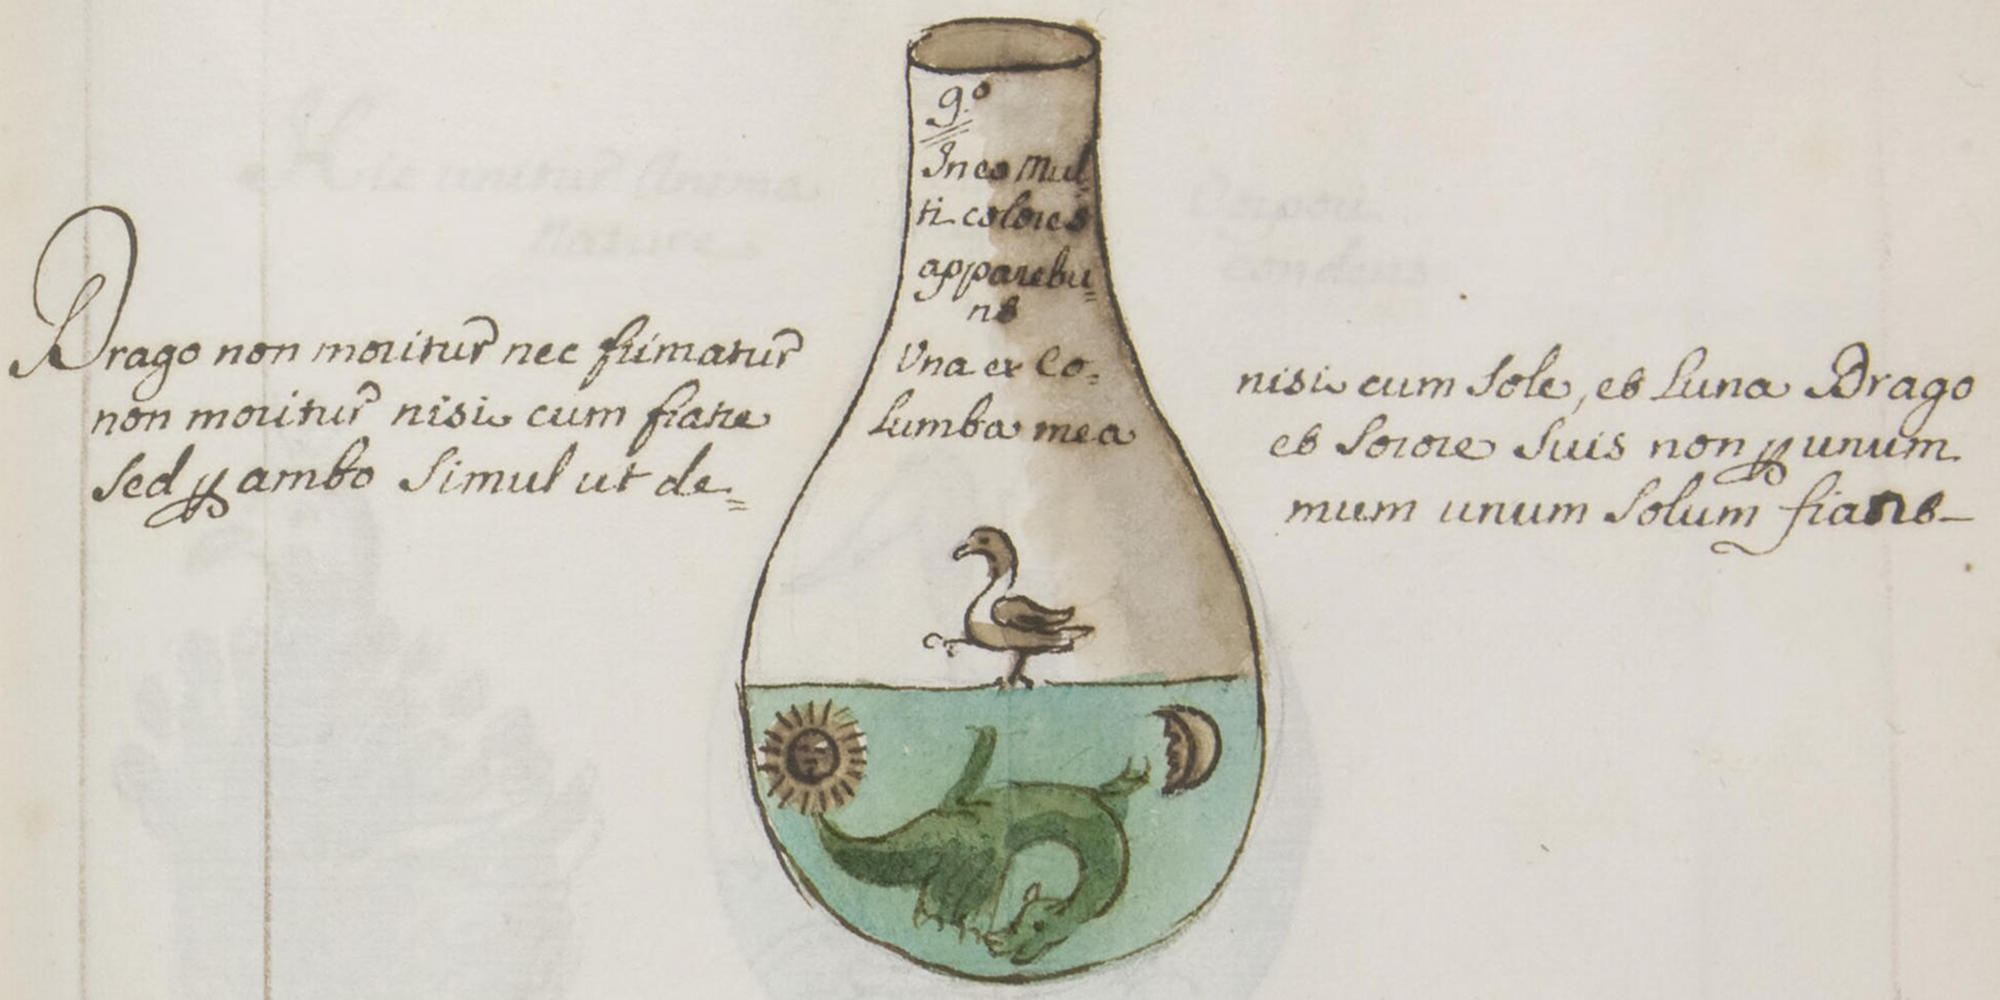 9.º
In eo Mul=
ti colores
apparebu=
nt
Una ex Co=
lumba mea
Drago non moritur nec firmatur
non moritur nisi cum fratre
sed ꝑ ambo simul ut de=
nisi cum Sole, et Luna Drago
et Sorore Suis non ꝑ unum
mum unum Solum fiant